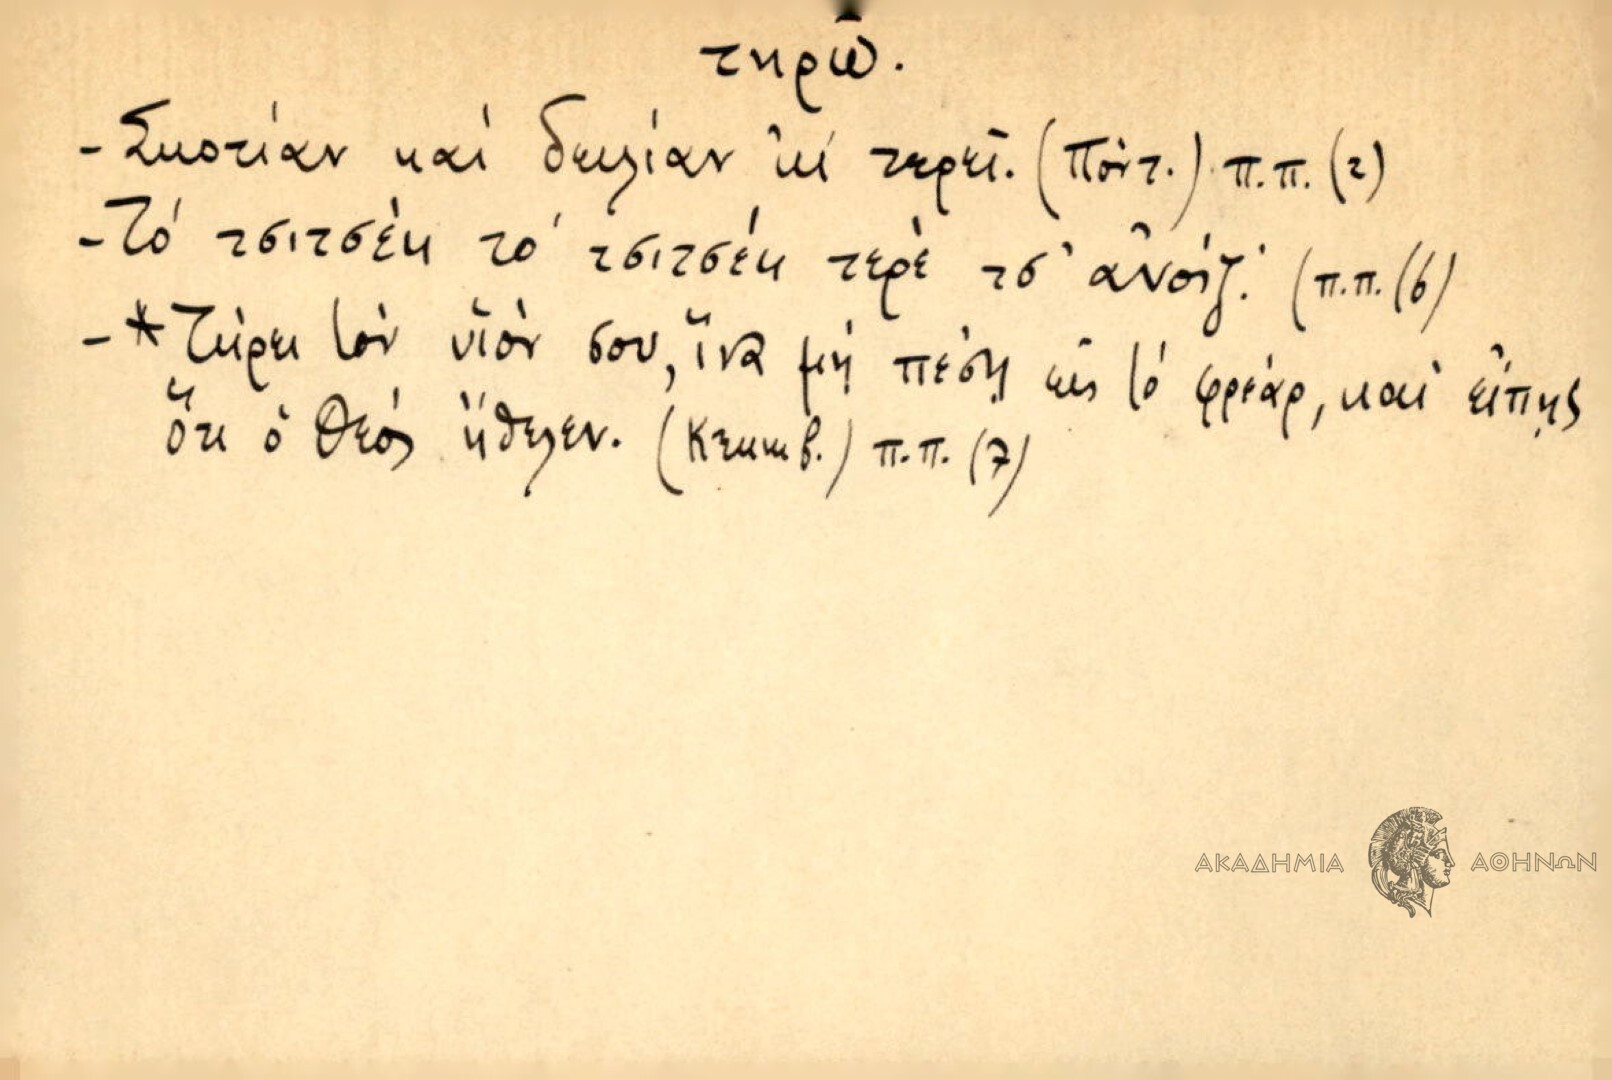 τηρῶ.
- Σκοτίαν καὶ δειλίαν 'κί τερεῖ. (Πόντ.) π.π. (2)
- Τό τσιτσέκ τό τσιτσέκ τερέ τσ' ἀνοίζ'. (π.π. (6)
- * Τήρει τόν υἱόν σου, ἵνα μή πέσῃ εἰς τό φρέαρ, καί εἴπῃς
ὅτι ὁ Θεός ἤθελεν. (Κεκαυβ.) π.π. (7)
ΑΚΑΔΗΜΙΑ ΑΘΗΝΩΝ